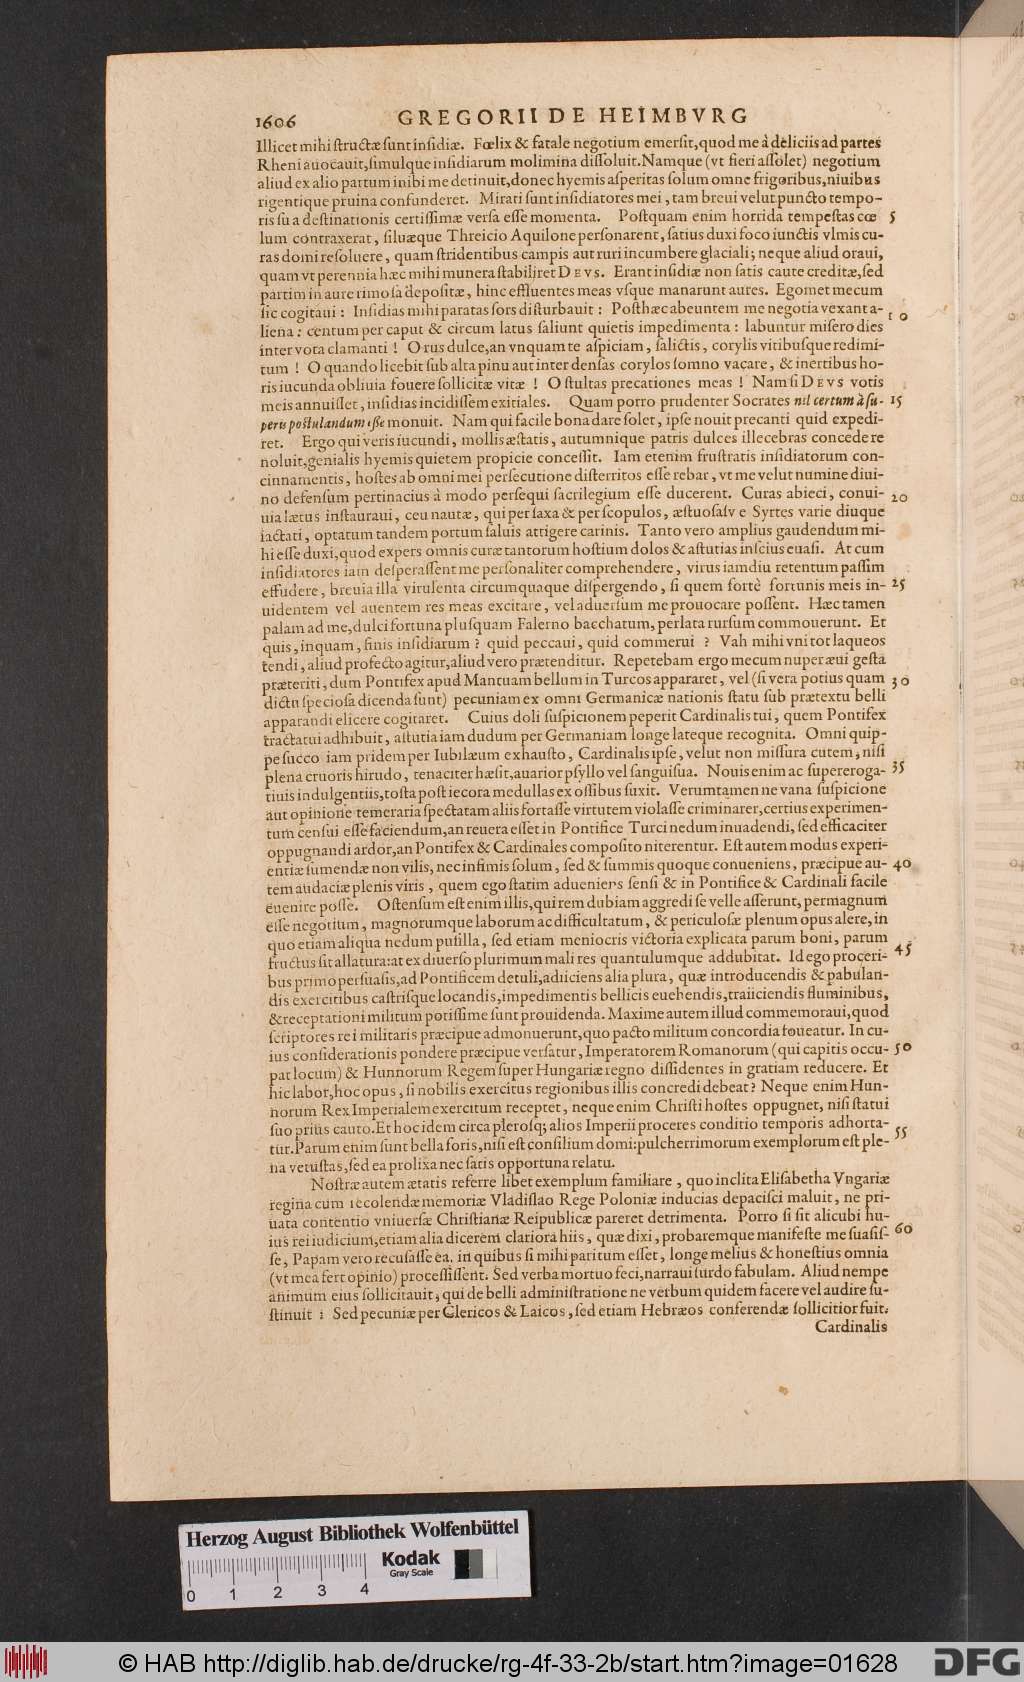 1606 GREGORII DE HEIMBVRG
Illicet mihi ſtructæ ſunt inſidiæ. Fœlix & fatale negotium emerſit, quod me à deliciis ad partes
Rheni auocauit, ſimulque inſidiarum molimina diſſoluit. Namque (vt fieri aſſolet) negotium
aliud ex alio partum inibi me detinuit, donec hyemis aſperitas ſolum omne frigoribus, niuibus
rigentique pruina confunderet. Mirati ſunt inſidiatores mei, tam breui velut puncto tempo-
ris ſua deſtinationis certiſſimæ verſa eſſe momenta. Poſtquam enim horrida tempeſtas cœ 5
lum contraxerat, ſiluæque Threicio Aquilone perſonarent, ſatius duxi foco iunctis vlmis cu-
ras domi reſoluere, quam ſtridentibus campis aut ruri incumbere glaciali; neque aliud oraui,
quam vt perennia hæc mihi munera ſtabiliret DEVS. Erant inſidiæ non ſatis caute creditæ, ſed
partim in aure rimoſa depoſitæ, hinc effluentes meas vſque manarunt aures. Egomet mecum
ſic cogitaui: Inſidias mihi paratas ſors diſturbauit: Poſthæc abeuntem me negotia vexant a- 10
liena: centum per caput & circum latus ſaliunt quietis impedimenta: labuntur miſero dies
inter vota clamanti! O rus dulce, an vnquam te aſpiciam, ſalictis, corylis vitibuſque redimi-
tum! O quando licebit ſub alta pinu aut inter denſas corylos ſomno vacare, & inertibus ho-
ris iucunda obliuia fouere ſollicitæ vitæ! O ſtultas precationes meas! Nam ſi DEVS votis
meis annuiſſet, inſidias incidiſſem exitiales. Quam porro prudenter Socrates nil certum à ſu- 15
peris poſtulandum eſſe monuit. Nam qui facile bona dare ſolet, ipſe nouit precanti quid expedi-
ret. Ergo qui veris iucundi, mollis æſtatis, autumnique patris dulces illecebras concedere
noluit, genialis hyemis quietem propicie conceſſit. Iam etenim fruſtratis inſidiatorum con-
cinnamentis, hoſtes ab omni mei perſecutione diſterritos eſſe rebar, vt me velut numine diui-
no defenſum pertinacius à modo perſequi ſacrilegium eſſe ducerent. Curas abieci, conui- 20
uia lætus inſtauraui, ceu nautæ, qui per ſaxa & per ſcopulos, æſtuoſaſve Syrtes varie diuque
iactati, optatum tandem portum ſaluis attigere carinis. Tanto vero amplius gaudendum mi-
hi eſſe duxi, quod expers omnis curæ tantorum hoſtium dolos & aſtutias inſcius euaſi. At cum
inſidiatores iam deſperaſſent me perſonaliter comprehendere, virus iamdiu retentum paſſim
effudere, breuia illa virulenta circumquaque diſpergendo, ſi quem fortè fortunis meis in- 25
uidentem vel auentem res meas excitare, vel aduerſum me prouocare poſſent. Hæc tamen
palam ad me, dulci fortuna pluſquam Falerno bacchatum, perlata rurſum commouerunt. Et
quis, inquam, finis inſidiarum? quid peccaui, quid commerui? Vah mihi vni tot laqueos
tendi, aliud profecto agitur, aliud vero prætenditur. Repetebam ergo mecum nuper æui geſta
præteriti, dum Pontifex apud Mantuam bellum in Turcos appararet, vel (ſi vera potius quam 30
dictu ſpecioſa dicenda ſunt) pecuniam ex omni Germanicæ nationis ſtatu ſub prætextu belli
apparandi elicere cogitaret. Cuius doli ſuſpicionem peperit Cardinalis tui, quem Pontifex
tractatui adhibuit, aſtutia iam dudum per Germaniam longe lateque recognita. Omni quip-
pe ſucco iam pridem per Iubilæum exhauſto, Cardinalis ipſe, velut non miſſura cutem, niſi
plena cruoris hirudo, tenaciter hæſit, auarior pſyllo vel ſanguiſua. Nouis enim ac ſupereroga- 35
tiuis indulgentiis, toſta poſt iecora medullas ex oſſibus ſuxit. Verumtamen ne vana ſuſpicione
aut opinione temeraria ſpectatam aliis fortaſſe virtutem violaſſe criminarer, certius experimen-
tum cenſui eſſe faciendum, an reuera eſſet in Pontifice Turci nedum inuadendi, ſed efficaciter
oppugnandi ardor, an Pontifex & Cardinales compoſito niterentur. Eſt autem modus experi-
entiæ ſumendæ non vilis, nec infimis ſolum, ſed & ſummis quoque conueniens, præcipue au- 40
tem audaciæ plenis viris, quem ego ſtatim adueniens ſenſi & in Pontifice & Cardinali facile
euenire poſſe. Oſtenſum eſt enim illis, qui rem dubiam aggredi ſe velle aſſerunt, permagnum
eſſe negotium, magnorumque laborum ac difficultatum, & periculoſæ plenum opus alere, in
quo etiam aliqua nedum puſilla, ſed etiam meniocris victoria explicata parum boni, parum
fructus ſit allatura: at ex diuerſo plurimum mali res quantulumque addubitat. Id ego proceri- 45
bus primo perſuaſis, ad Pontificem detuli, adiiciens alia plura, quæ introducendis & pabulan-
dis exercitibus caſtriſque locandis, impedimentis bellicis euehendis, traiiciendis fluminibus,
& receptationi militum potiſſime ſunt prouidenda. Maxime autem illud commemoraui, quod
ſcriptores rei militaris præcipue admonuerunt, quo pacto militum concordia foueatur. In cu-
ius conſiderationis pondere præcipue verſatur, Imperatorem Romanorum (qui capitis occu- 50
pat locum) & Hunnorum Regem ſuper Hungariæ regno diſſidentes in gratiam reducere. Et
hic labor, hoc opus, ſi nobilis exercitus regionibus illis concredi debeat? Neque enim Hun-
norum Rex Imperialem exercitum receptet, neque enim Chriſti hoſtes oppugnet, niſi ſtatui
ſuo prius cauto. Et hoc idem circa pleroſq; alios Imperii proceres conditio temporis adhorta-
tur. Parum enim ſunt bella foris, niſi eſt conſilium domi: pulcherrimorum exemplorum eſt ple- 55
na vetuſtas, ſed ea prolixa nec ſatis opportuna relatu.
Noſtræ autem ætatis referre libet exemplum familiare, quo inclita Eliſabetha Vngariæ
regina cum recolendæ memoriæ Vladiſlao Rege Poloniæ inducias depaciſci maluit, ne pri-
uata contentio vniuerſæ Chriſtianæ Reipublicæ pareret detrimenta. Porro ſi ſit alicubi hu-
ius rei iudicium, etiam alia dicerem clariora hiis, quæ dixi, probaremque manifeſte me ſuaſiſ- 60
ſe, Papam vero recuſaſſe ea, in quibus ſi mihi paritum eſſet, longe melius & honeſtius omnia
(vt mea fert opinio) proceſſiſſent. Sed verba mortuo feci, narraui ſurdo fabulam. Aliud nempe
animum eius ſollicitauit, qui de belli adminiſtratione ne verbum quidem facere vel audire ſu-
ſtinuit: Sed pecuniæ per Clericos & Laicos, ſed etiam Hebræos conferendæ ſollicitior fuit.
Cardinalis
Herzog August Bibliothek Wolfenbüttel
Kodak
Gray Scale
0 1 2 3 4
© HAB http://diglib.hab.de/drucke/rg-4f-33-2b/start.htm?image=01628
DFG